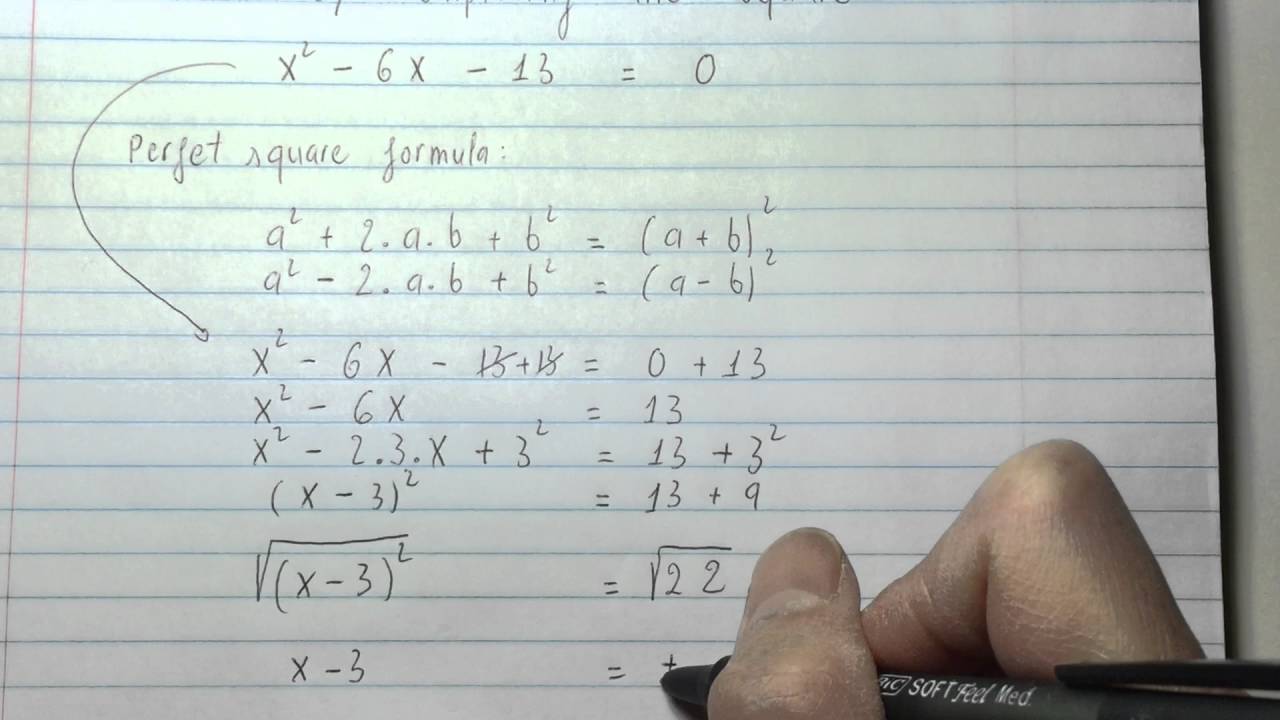 the square
x² - 6x - 13 = 0
Perfet square formula:
a² + 2.a.b + b² = (a + b)²
a² - 2.a.b + b² = (a - b)²
x² - 6x - 13+13 = 0 + 13
x² - 6x = 13
x² - 2.3.x + 3² = 13 + 3²
(x - 3)² = 13 + 9
√(x-3)² = √22
x - 3 = ±
BIC SOFT Feel Med.